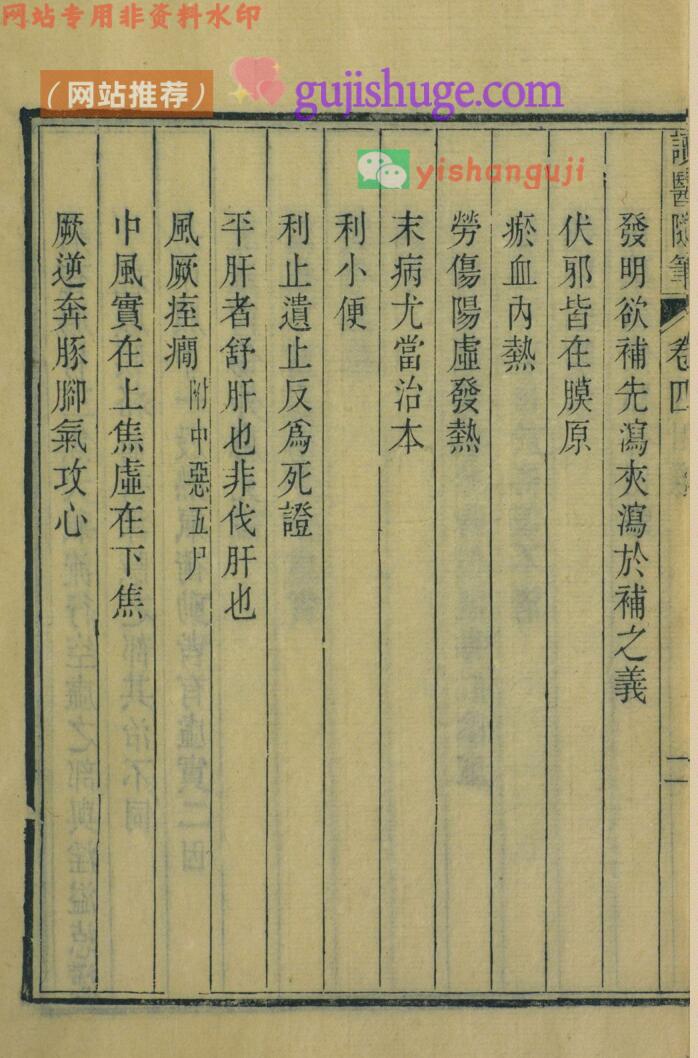 网站专用非资料水印
（网站推荐）
gujishuge.com
yishanguji
讀醫隨筆
卷四
二
發明欲補先瀉夾瀉於補之義
伏邪皆在膜原
瘀血內熱
勞傷陽虛發熱
末病尤當治本
利小便
利止遺止反爲死證
平肝者舒肝也非伐肝也
風厥痙癇附中惡五尸
中風實在上焦虛在下焦
厥逆奔豚腳氣攻心